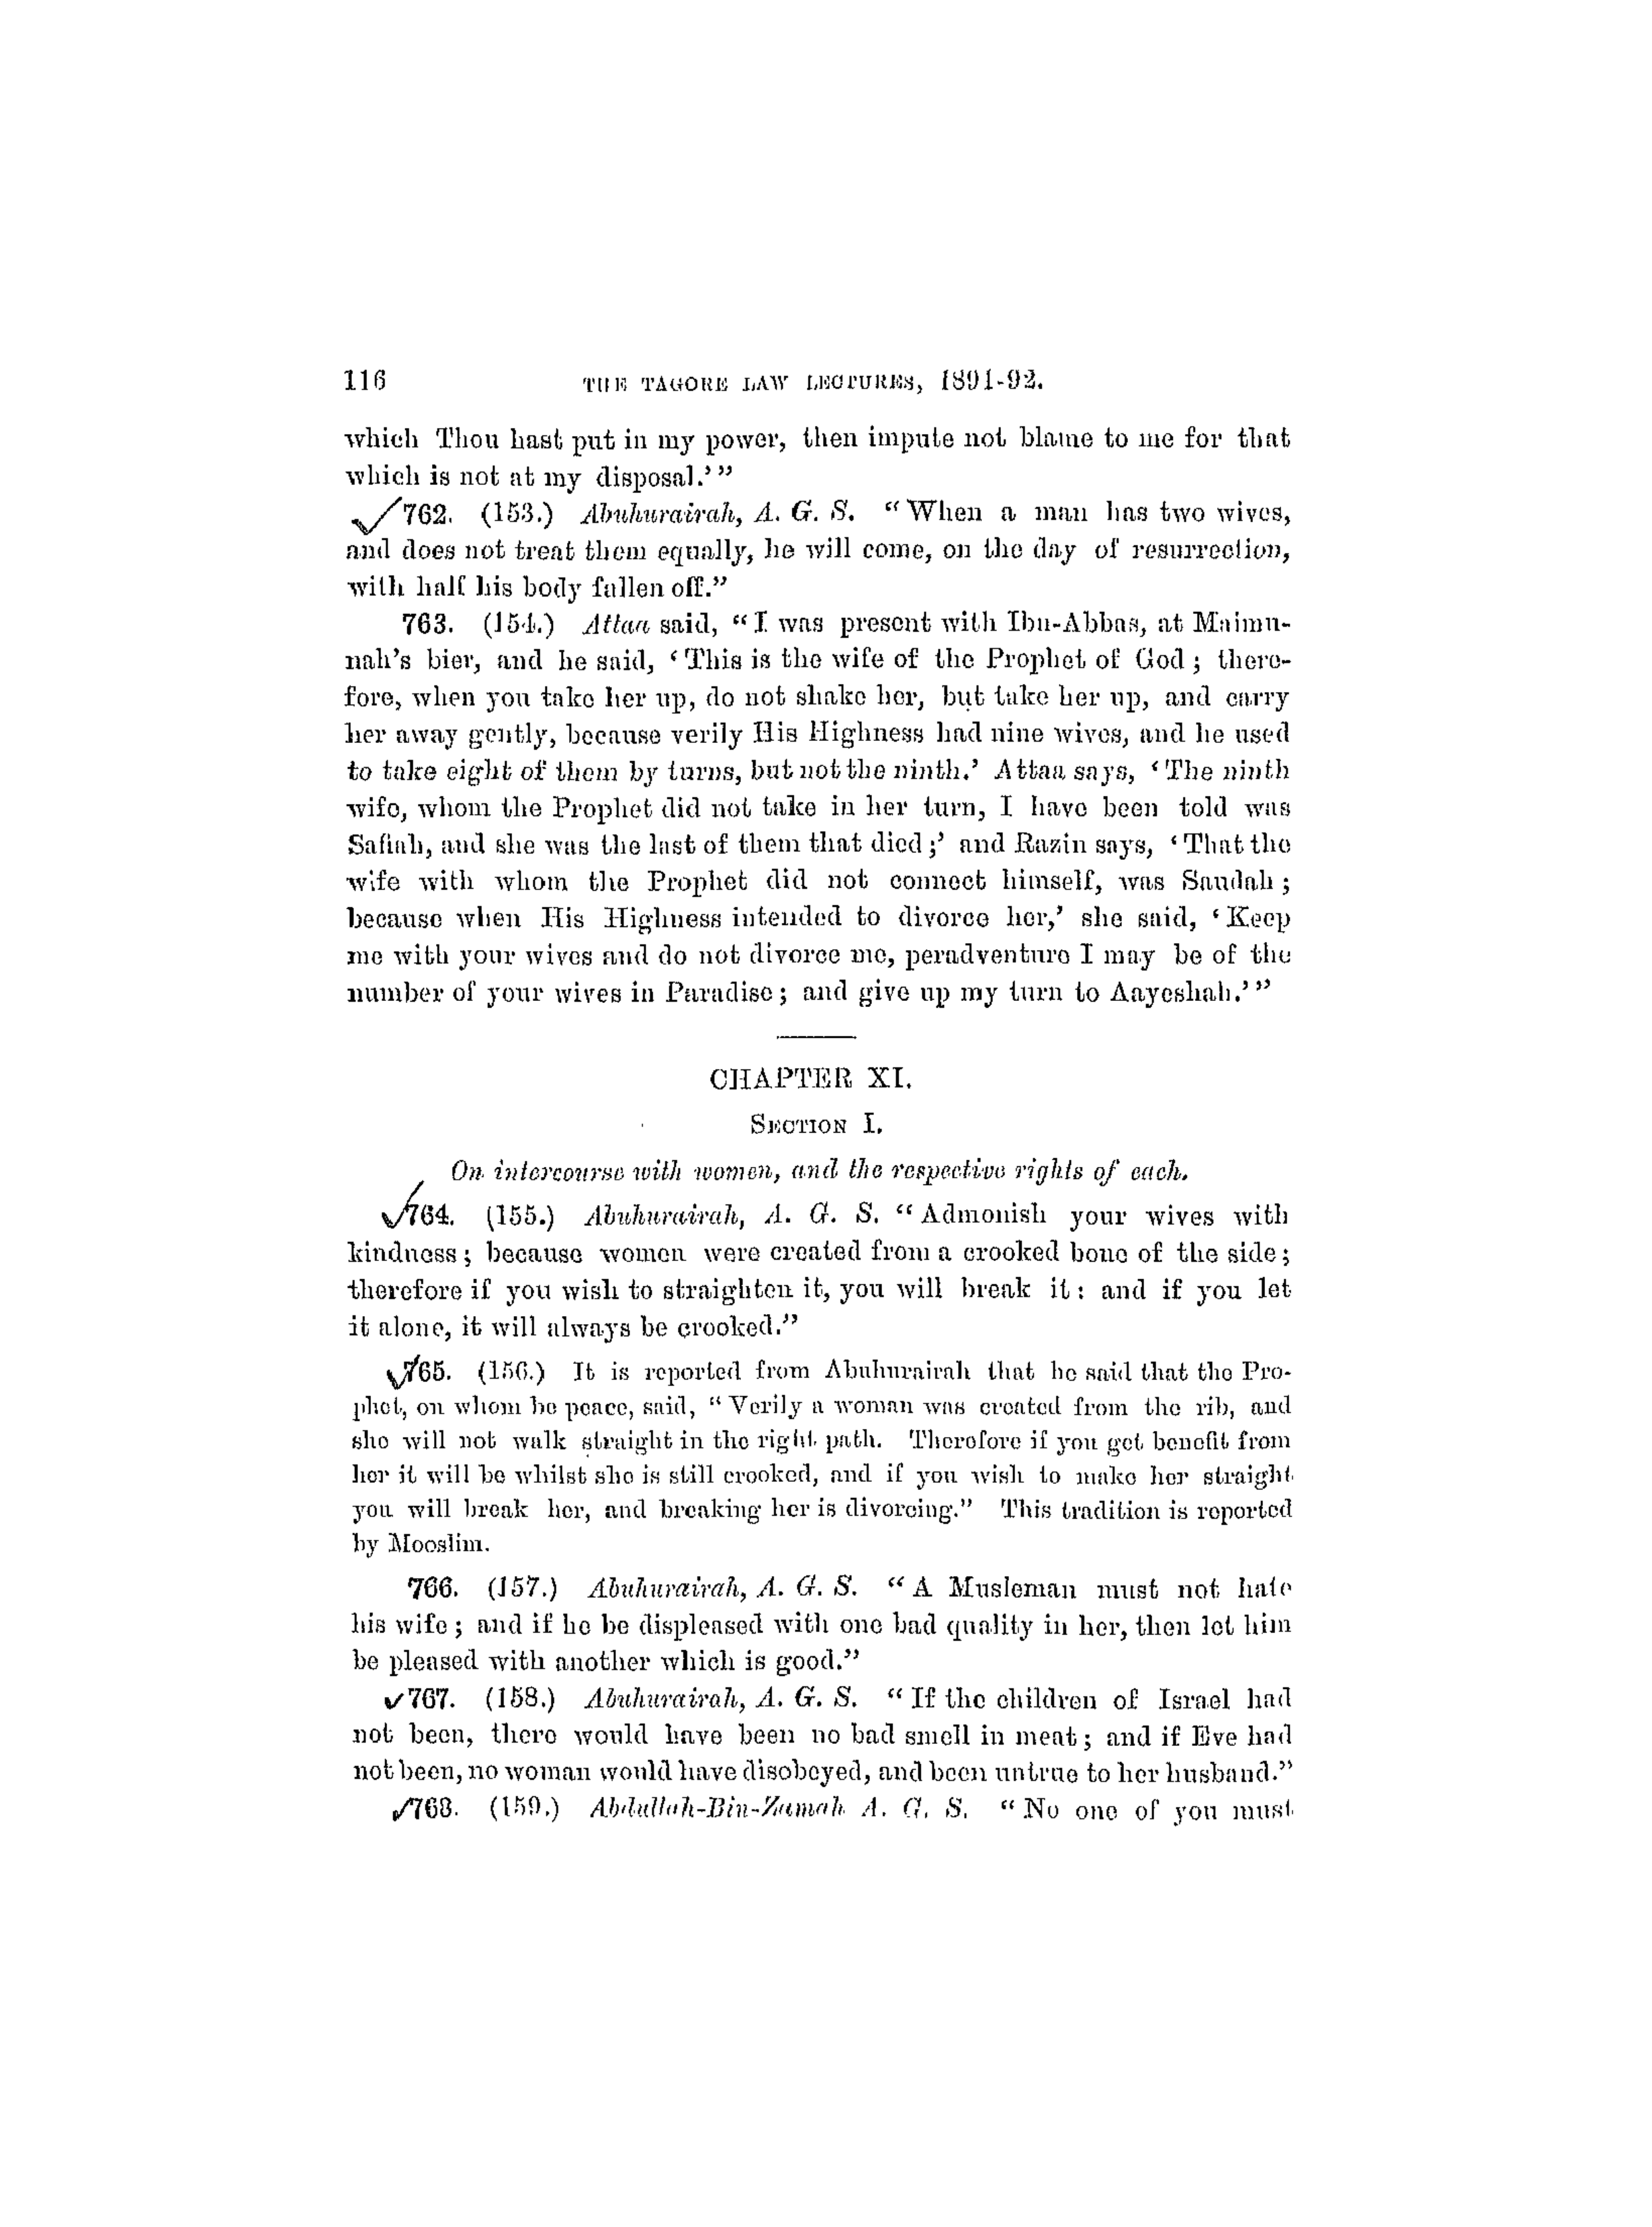 116 THE TAGORE LAW LECTURES, 1891-92.
which Thou hast put in my power, then impute not blame to me for that
which is not at my disposal.’”
762. (153.) Abuhurairah, A. G. S. “When a man has two wives,
and does not treat them equally, he will come, on the day of resurrection,
with half his body fallen off.”
763. (154.) Attaa said, “I was present with Ibn-Abbas, at Maimu-
nah’s bier, and he said, ‘This is the wife of the Prophet of God; there-
fore, when you take her up, do not shake her, but take her up, and carry
her away gently, because verily His Highness had nine wives, and he used
to take eight of them by turns, but not the ninth.’ Attaa says, ‘The ninth
wife, whom the Prophet did not take in her turn, I have been told was
Safiah, and she was the last of them that died;’ and Razin says, ‘That the
wife with whom the Prophet did not connect himself, was Saudah;
because when His Highness intended to divorce her,’ she said, ‘Keep
me with your wives and do not divorce me, peradventure I may be of the
number of your wives in Paradise; and give up my turn to Aayeshah.’”
CHAPTER XI.
SECTION I.
On intercourse with women, and the respective rights of each.
764. (155.) Abuhurairah, A. G. S. “Admonish your wives with
kindness; because women were created from a crooked bone of the side;
therefore if you wish to straighten it, you will break it: and if you let
it alone, it will always be crooked.”
765. (156.) It is reported from Abuhurairah that he said that the Pro-
phet, on whom be peace, said, “Verily a woman was created from the rib, and
she will not walk straight in the right path. Therefore if you get benefit from
her it will be whilst she is still crooked, and if you wish to make her straight
you will break her, and breaking her is divorcing.” This tradition is reported
by Mooslim.
766. (157.) Abuhurairah, A. G. S. “A Musleman must not hate
his wife; and if he be displeased with one bad quality in her, then let him
be pleased with another which is good.”
767. (158.) Abuhurairah, A. G. S. “If the children of Israel had
not been, there would have been no bad smell in meat; and if Eve had
not been, no woman would have disobeyed, and been untrue to her husband.”
768. (159.) Abdullah-Bin-Zamah A. G. S. “No one of you must